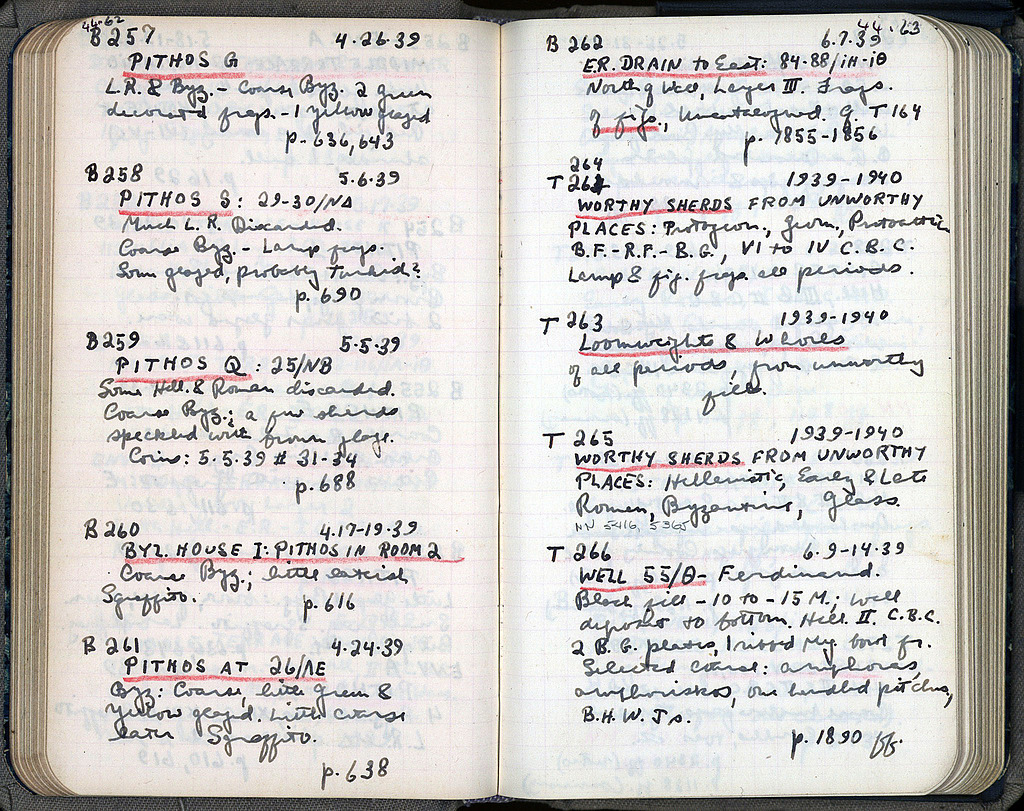 44-62
B 257 4.26.39
PITHOS G
L.R. & Byz. - Coarse Byz. 2 green
decorated frags. - 1 yellow glazed
p. 636, 643
B 258 5.6.39
PITHOS S: 29-30/ΝΔ
Much L.R. Discarded.
Coarse Byz. - Lamp frags.
Some glazed, probably Turkish?
p. 690
B 259 5.5.39
PITHOS Q: 25/NB
Some Hell. & Roman discarded.
Coarse Byz.; a few sherds
speckled with brown glaze.
Coins: 5.5.39 # 31-34
p. 688
B 260 4.17-19.39
BYZ. HOUSE I: PITHOS IN ROOM 2
Coarse Byz.; little laterish
Sgraffito. p. 616
B 261 4.24.39
PITHOS AT 26/ΛΕ
Byz: Coarse, little green &
yellow glazed. Little coarse
later Sgraffito.
p. 638
44-63
B 262 6.7.39
ER. DRAIN to East: 84-88/ΙΗ-ΙΘ
North of Wall, Layer III. Frags.
of figs., Uncatalogued. G. T 164
p. 1855-1856
264
T 1939-1940
WORTHY SHERDS FROM UNWORTHY
PLACES: Protogeom., Geom., Protoattic
B.F.-R.F.-B.G., VI to IV C.B.C.
Lamp & fig. frags. all periods.
T 263 1939-1940
Loomweights & Whorls
of all periods, from unworthy
fills.
T 265 1939-1940
WORTHY SHERDS FROM UNWORTHY
PLACES: Hellenistic, Early & Late
Roman, Byzantine, Glass.
5416, 5365
T 266 6.9-14.39
WELL 55/Θ- Ferdinand.
Black fill - 10 to -15 M.; well
deposit to bottom, Hell. II C.B.C.
2 B.G. plates, 1 ribbed Meg. bowl fr.
Selected coarse: amphoras,
amphoriskos, one handled pitcher,
B.H.W. Js.
p. 1890 ff.